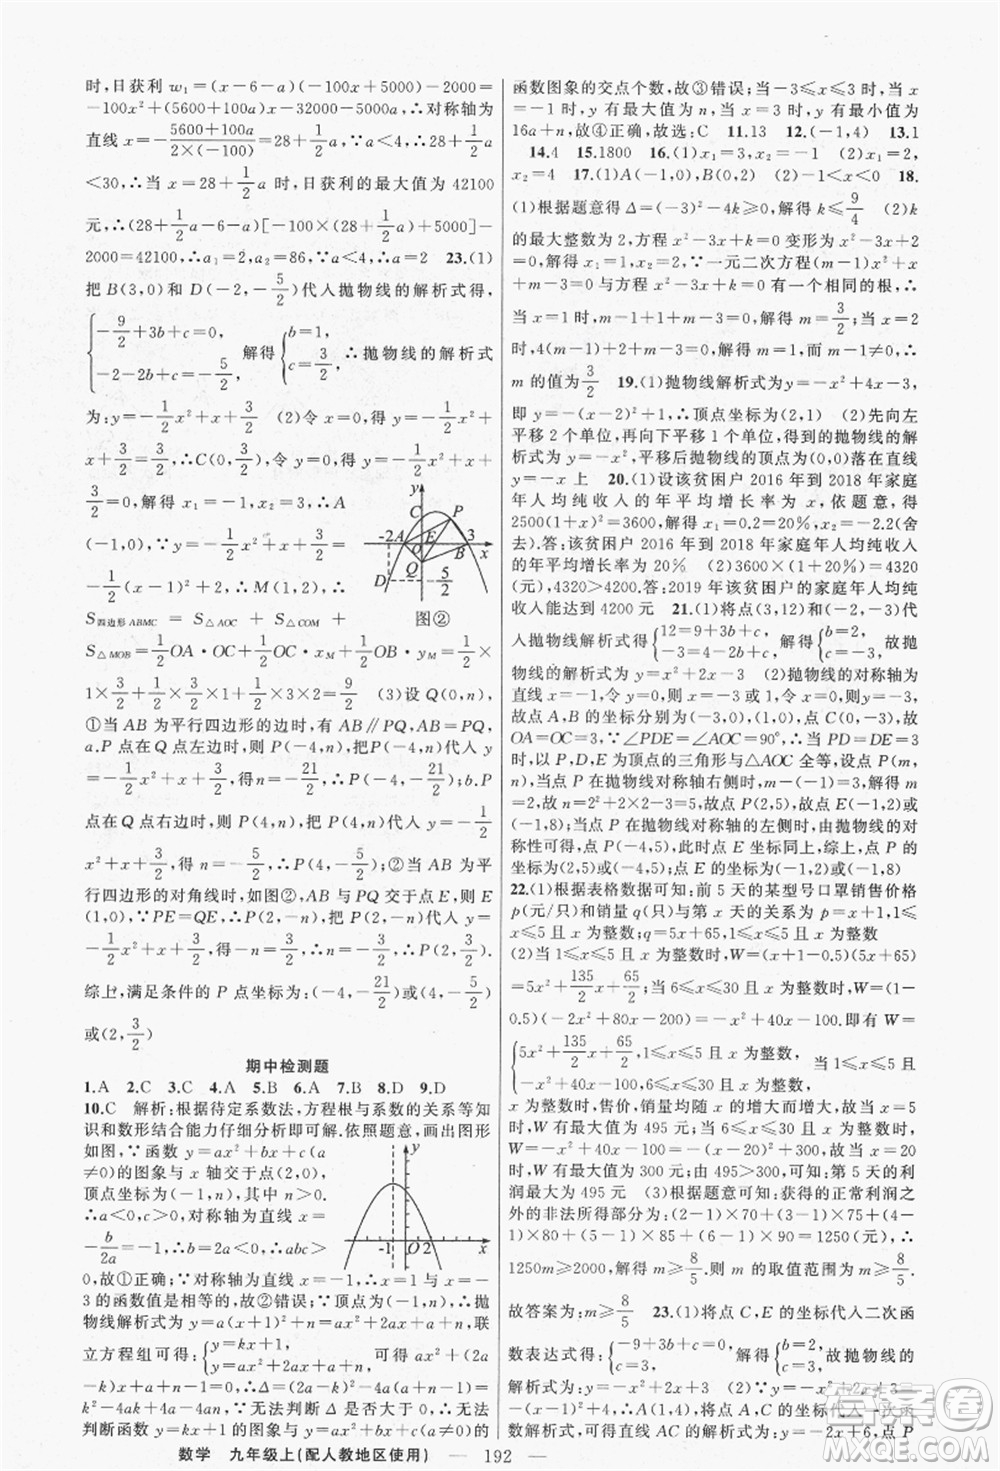 时,日获利 w₁=(x-6-a)(-100x+5000)-2000=
-100x²+(5600+100a)x-32000-5000a,∴对称轴为
直线 x=-(5600+100a)/(2×(-100))=28+1/2a,∵a<4,∴28+1/2a
<30,∴当 x=28+1/2a 时,日获利的最大值为 42100
元,∴(28+1/2a-6-a)[-100×(28+1/2a)+5000]-
2000=42100,∴a₁=2,a₂=86,∵a<4,∴a=2 23.(1)
把 B(3,0)和 D(-2,-5/2)代人抛物线的解析式得,
{-9/2+3b+c=0, -2-2b+c=-5/2, 解得{b=1, c=3/2, ∴抛物线的解析式
为:y=-1/2x²+x+3/2 (2)令 x=0,得 y=-1/2x²+
x+3/2=3/2,∴C(0,3/2),令 y=0,得-1/2x²+x+
3/2=0,解得 x=-1 或 x=3,∴A
(-1,0),∵y=-1/2x²+x+3/2
=-1/2(x-1)²+2,∴M(1,2),∴
S四边形ABMC = S△AOC + S△COM +
S△MOB=1/2OA·OC+1/2OC·xM+1/2OB·yM=1/2×
1×3/2+1/2×3/2×1+1/2×3×2=9/2 (3)设 Q(0,n),
①当 AB 为平行四边形的边时,有 AB∥PQ,AB=PQ,
a.P 点在 Q 点左边时,则 P(-4,n),把 P(-4,n)代人 y
=-1/2x²+x+3/2,得 n=-21/2,∴P(-4,-21/2);b.P
点在 Q 点右边时,则 P(4,n),把 P(4,n)代人 y=-1/2
x²+x+3/2,得 n=-5/2,∴P(4,-5/2);②当 AB 为平
行四边形的对角线时,如图②,AB 与 PQ 交于点 E,则 E
(1,0),∵PE=QE,∴P(2,-n),把 P(2,-n)代人 y=
-1/2x²+x+3/2,得-n=3/2,∴n=-3/2,∴P(2,3/2).
综上,满足条件的 P 点坐标为:(-4,-21/2)或(4,-5/2)
或(2,3/2)
y
C
P
-2
A
E
O
3
B
x
Q
D
-5/2
图②
期中检测题
1.A 2.C 3.C 4.A 5.B 6.A 7.B 8.D 9.D
10.C 解析:根据待定系数法,方程根与系数的关系等知
识和数形结合能力仔细分析即可解.依照题意,画出图形
如图,∵函数 y=ax²+bx+c(a
≠0)的图象与 x 轴交于点(2,0),
顶点坐标为(-1,n),其中 n>0.
∴a<0,对称轴为直线 x=
-b/2a=-1,∴b=2a<0,∴abc>
0,故①正确;∵对称轴为直线 x=-1,∴x=1 与 x=-
3 的函数值是相等的,故②错误;∵顶点为(-1,n),∴抛
物线解析式为:y=a(x+1)²+n=ax²+2ax+a+n,联
立方程组可得:{y=kx+1, y=ax²+2ax+a+n, 可得 ax²+(2a
-k)x+a+n-1=0,∴Δ=(2a-k)²-4a(a+n-1)=
k²-4ak+4a-4an,∵无法判断 Δ 是否大于 0,∴无法
判断函数 y=kx+1 的图象与 y=ax²+bx+c(a≠0)的
y
-1
O
2
x
函数图象的交点个数,故③错误;当-3≤x≤3 时,当 x
=-1 时,y 有最大值为 n,当 x=3 时,y 有最小值为
16a+n,故④正确,故选:C 11.13 12.(-1,4) 13.1
14.4 15.1800 16.(1)x₁=3,x₂=-1 (2)x₁=2,
x₂=4 17.(1)A(-1,0),B(0,2) (2)-1<x<0 18.
(1)根据题意得 Δ=(-3)²-4k≥0,解得 k≤9/4 (2)k
的最大整数为 2,方程 x²-3x+k=0 变形为 x²-3x+2
=0,解得 x₁=1,x₂=2,∵一元二次方程(m-1)x²+x
+m-3=0 与方程 x²-3x+k=0 有一个相同的根,∴
当 x=1 时,m-1+1+m-3=0,解得 m=3/2;当 x=2
时,4(m-1)+2+m-3=0,解得 m=1,而 m-1≠0,∴
m 的值为3/2 19.(1)抛物线解析式为y=-x²+4x-3,
即 y=-(x-2)²+1,∴顶点坐标为(2,1) (2)先向左
平移 2 个单位,再向下平移 1 个单位,得到的抛物线的解
析式为 y=-x²,平移后抛物线的顶点为(0,0)落在直线
y=-x 上 20.(1)设该贫困户 2016 年到 2018 年家庭
年人均纯收入的年平均增长率为 x,依题意,得
2500(1+x)²=3600,解得 x₁=0.2=20%,x₂=-2.2(舍
去).答:该贫困户 2016 年到 2018 年家庭年人均纯收入
的年平均增长率为 20% (2)3600×(1+20%)=4320
(元),4320>4200.答:2019 年该贫困户的家庭年人均纯
收入能达到 4200 元 21.(1)将点(3,12)和(-2,-3)代
人抛物线解析式得{12=9+3b+c, -3=4-2b+c, 解得{b=2, c=-3, 故抛
物线的解析式为:y=x²+2x-3 (2)抛物线的对称轴为
直线 x=-1,令 y=0,则 x=-3 或 1,令 x=0,则 y=-3,
故点 A,B 的坐标分别为(-3,0),(1,0),点 C(0,-3),故
OA=OC=3,∵∠PDE=∠AOC=90°,∴当 PD=DE=3
时,以 P,D,E 为顶点的三角形与△AOC 全等,设点 P(m,
n),当点 P 在抛物线对称轴右侧时,m-(-1)=3,解得 m
=2,故 n=2²+2×2-3=5,故点 P(2,5),故点 E(-1,2)或
(-1,8);当点 P 在抛物线对称轴的左侧时,由抛物线的对
称性可得,点 P(-4,5),此时点 E 坐标同上,综上,点 P 的
坐标为(2,5)或(-4,5);点 E 的坐标为(-1,2)或(-1,8)
22.(1)根据表格数据可知:前 5 天的某型号口罩销售价格
p(元/只)和销量 q(只)与第 x 天的关系为:p=x+1,1≤x
≤5 且 x 为整数;q=5x+65,1≤x≤5 且 x 为整数
(2)当 1≤x≤5 且 x 为整数时,W=(x+1-0.5)(5x+65)
=5x²+135/2x+65/2;当 6≤x≤30 且 x 为整数时,W=(1-
0.5)(-2x²+80x-200)=-x²+40x-100.即有 W=
{5x²+135/2x+65/2,1≤x≤5 且 x 为整数, -x²+40x-100,6≤x≤30 且 x 为整数, 当 1≤x≤5 且
x 为整数时,售价,销量均随 x 的增大而增大,故当 x=5
时,W 有最大值为 495 元;当 6≤x≤30 且 x 为整数时,
W=-x²+40x-100=-(x-20)²+300,故当 x=20
时,W 有最大值为 300 元;由 495>300,可知:第 5 天的利
润最大为 495 元 (3)根据题意可知:获得的正常利润之
外的非法所得部分为:(2-1)×70+(3-1)×75+(4-
1)×80+(5-1)×85+(6-1)×90=1250(元),∴
1250m≥2000,解得 m≥8/5.则 m 的取值范围为 m≥8/5.
故答案为:m≥8/5 23.(1)将点 C,E 的坐标代人二次函
数表达式得:{-9+3b+c=0, c=3, 解得{b=2, c=3, 故抛物线的
数学 九年级上(配人教地区使用) — 192 —